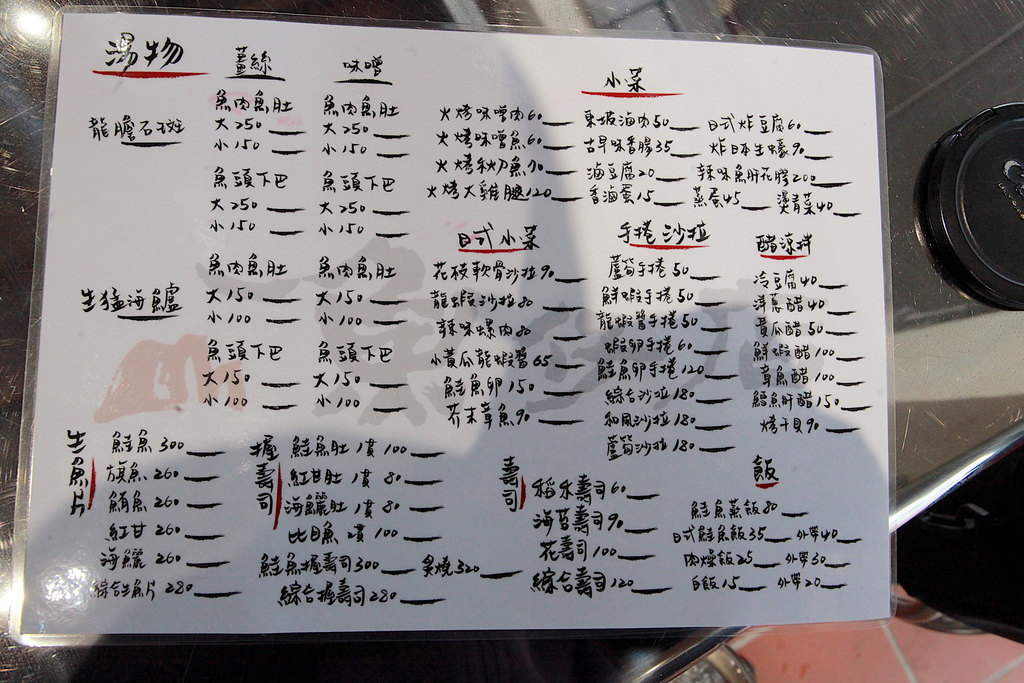 湯物
薑絲
味噌
龍膽石斑
魚肉魚肚 魚肉魚肚
大250 大250
小150 小150
魚頭下巴 魚頭下巴
大250 大250
小150 小150
生猛海鱸
魚肉魚肚 魚肉魚肚
大150 大150
小100 小100
魚頭下巴 魚頭下巴
大150 大150
小100 小100
小菜
火烤味噌肉60 東坡滷肉50 日式炸豆腐60
火烤味噌魚60 古早味香腸35 炸日本生蠔90
火烤秋刀魚70 滷豆腐20 辣味魚肝花膠200
火烤大雞腿120 香滷蛋15 蒸蛋45 燙青菜40
日式小菜
花枝軟骨沙拉90
龍蝦沙拉80
辣味螺肉80
小黃瓜龍蝦醬65
鮭魚卵150
芥末章魚90
手捲沙拉
蘆筍手捲50
鮮蝦手捲50
龍蝦醬手捲50
蝦卵手捲60
鮭魚卵手捲120
綜合沙拉180
和風沙拉180
蘆筍沙拉180
醋涼拌
冷豆腐40
洋蔥醋40
黃瓜醋50
鮮蝦醋100
章魚醋100
鱈魚肝醋150
烤干貝90
生魚片
鮭魚300
旗魚260
鮪魚260
紅甘260
海鱺260
綜合生魚片280
握壽司
鮭魚肚1貫100
紅甘肚1貫80
海鱺肚1貫80
比目魚2貫100
鮭魚握壽司300 炙燒320
綜合握壽司280
壽司
稻禾壽司60
海苔壽司90
花壽司100
綜合壽司120
飯
鮭魚蒸飯80
日式鮭魚飯35 外帶40
肉燥飯25 外帶30
白飯15 外帶20